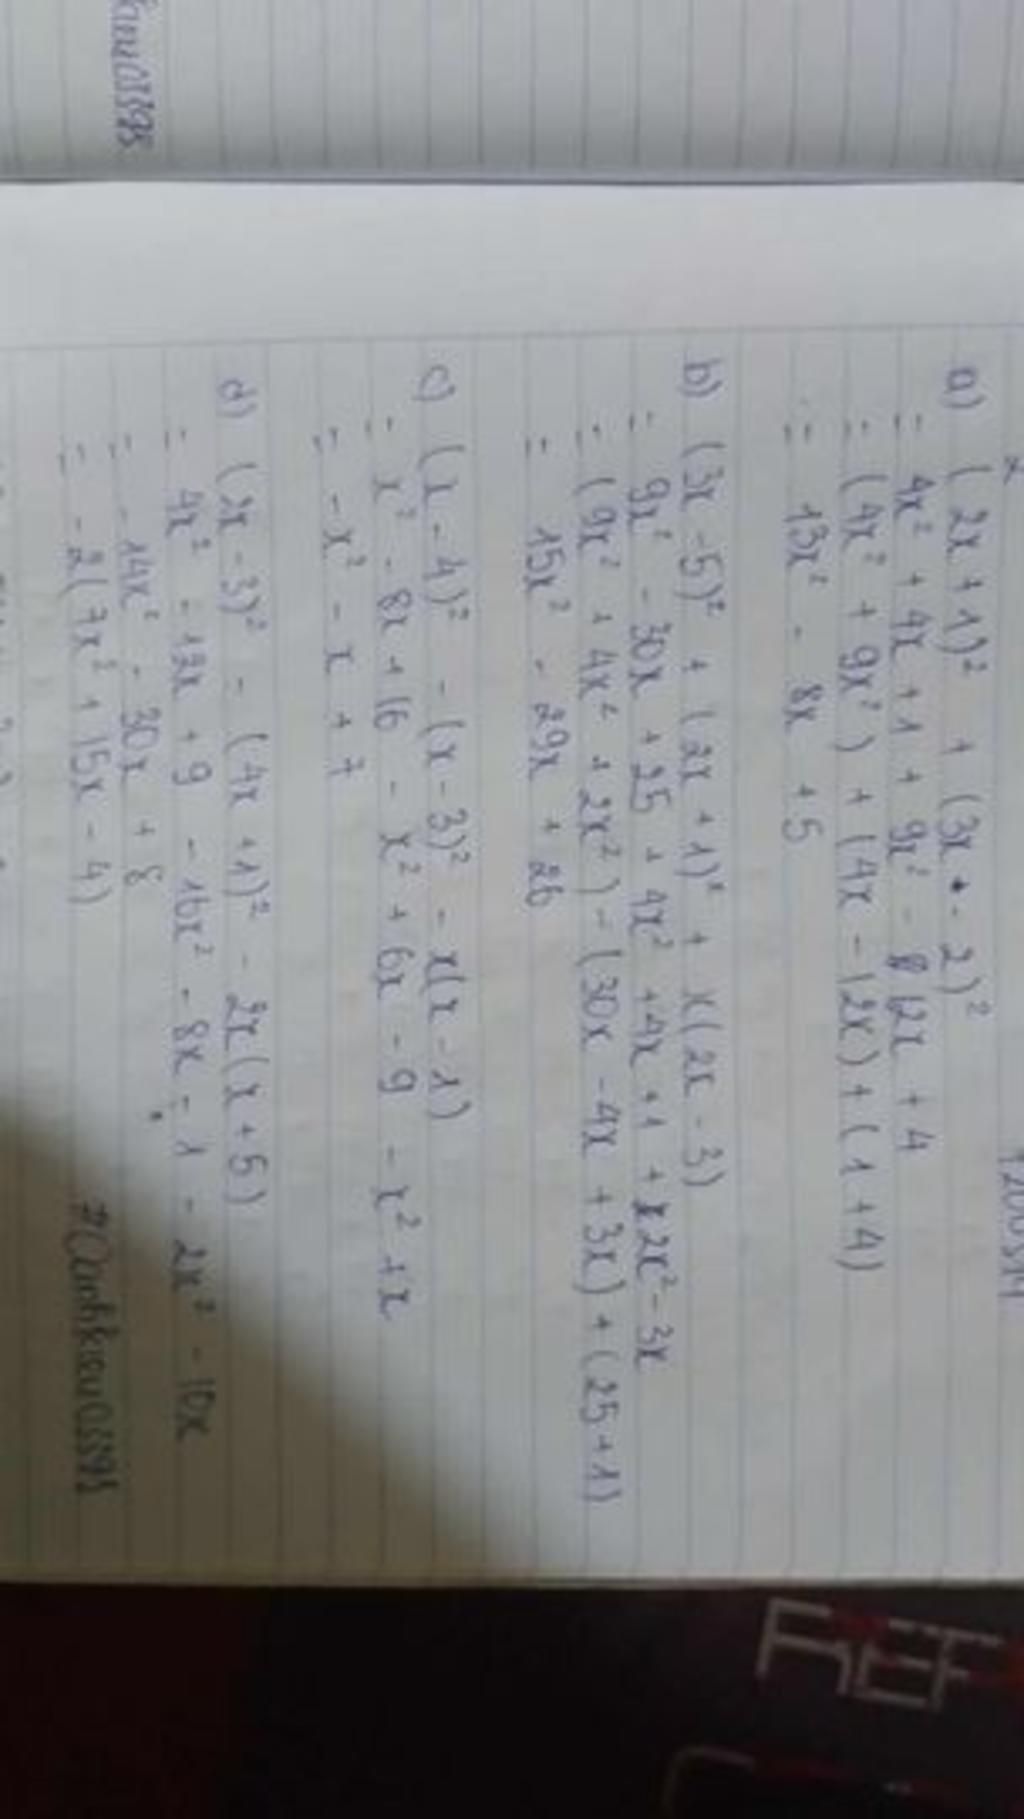 a) (2x + 1)² + (3x - 2)²
= 4x² + 4x + 1 + 9x² - 12x + 4
= (4x² + 9x²) + (4x - 12x) + (1 + 4)
= 13x² - 8x + 5
b) (3x - 5)² + (2x + 1)² + x(2x - 3)
= 9x² - 30x + 25 + 4x² + 4x + 1 + 2x² - 3x
= (9x² + 4x² + 2x²) - (30x - 4x + 3x) + (25 + 1)
= 15x² - 29x + 26
c) (x - 4)² - (x - 3)² - x(x - 1)
= x² - 8x + 16 - x² + 6x - 9 - x² + x
= - x² - x + 7
d) (2x - 3)² - (4x + 1)² - 2x(x + 5)
= 4x² - 12x + 9 - 16x² - 8x - 1 - 2x² - 10x
= - 14x² - 30x + 8
= - 2(7x² + 15x - 4)